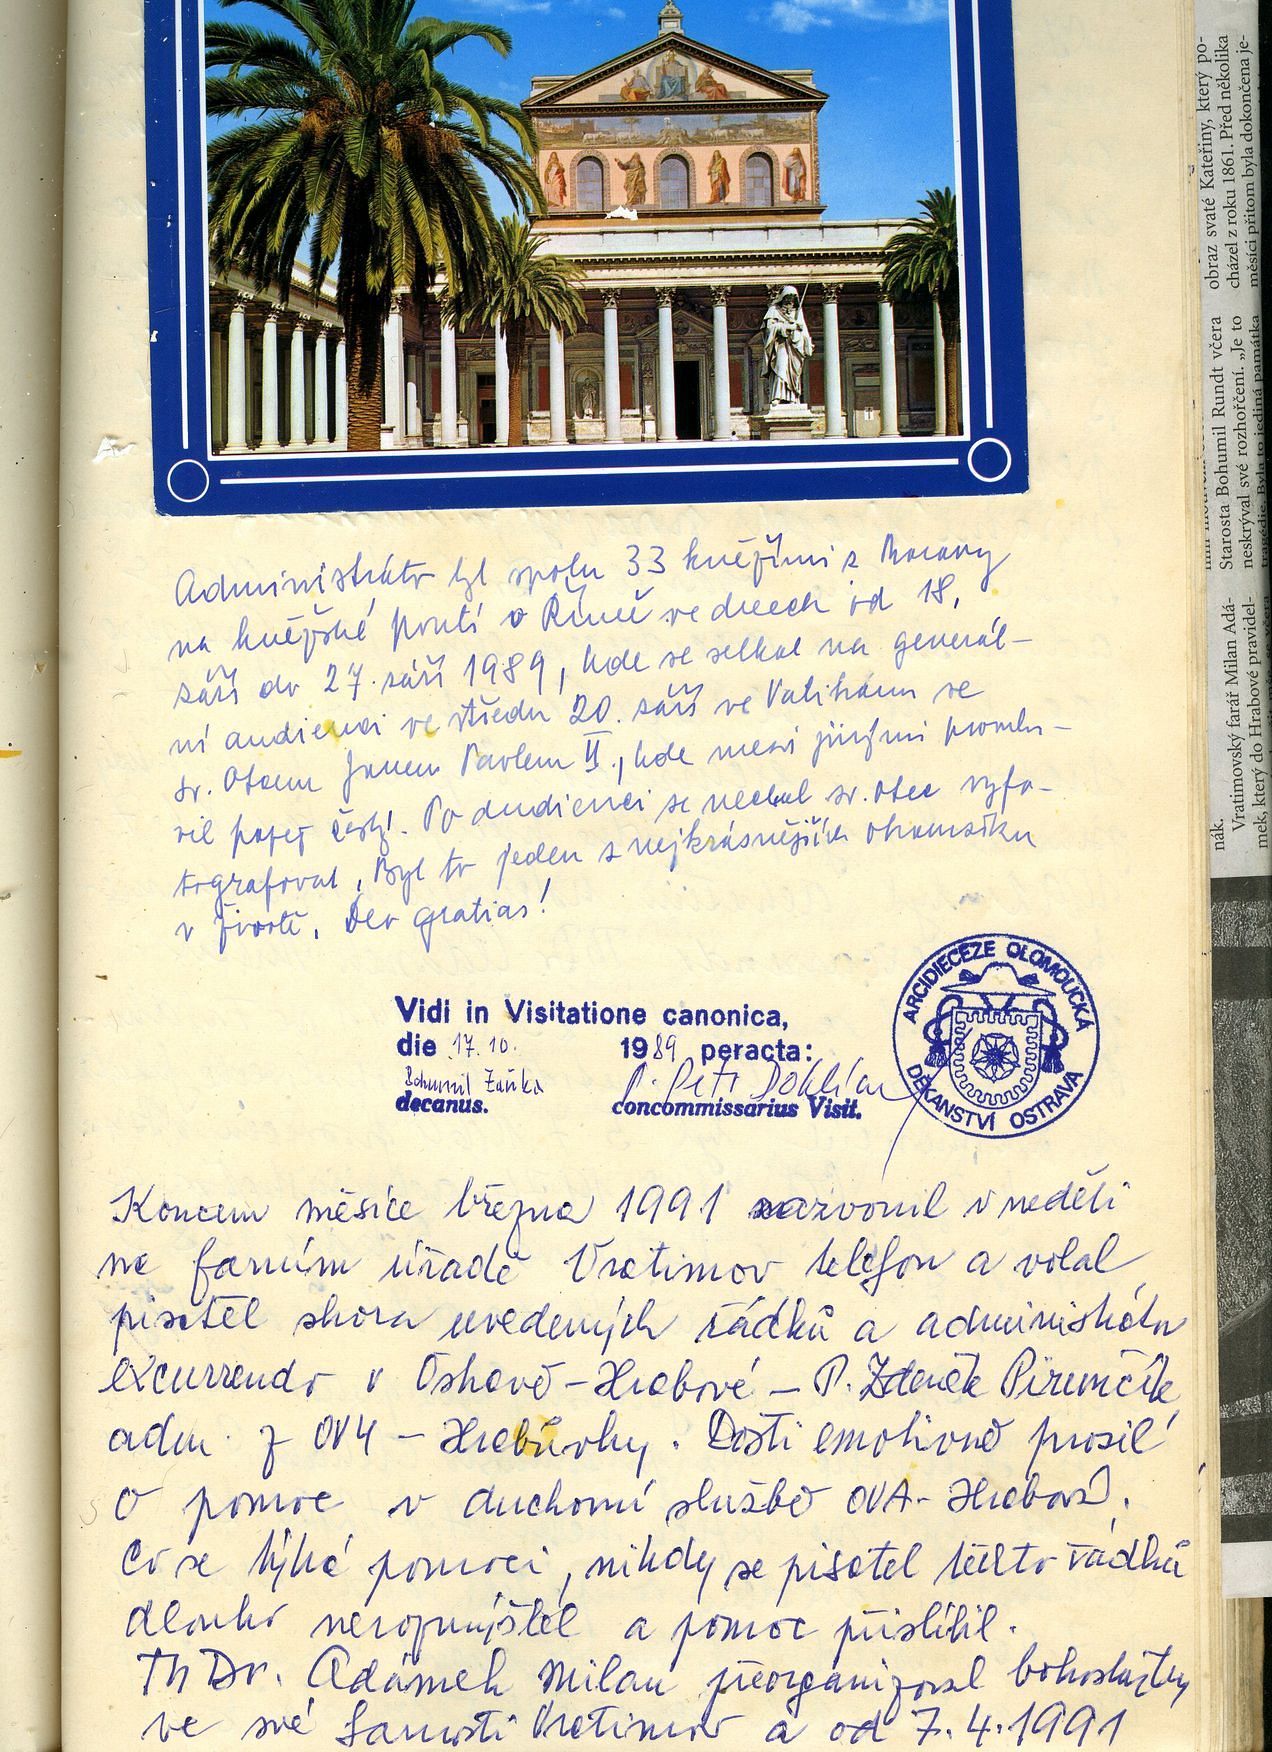 Administrátor byl spolu 33 kněžími z Moravy
na kněžské pouti v Římě ve dnech od 18.
září do 27. září 1989, kde se setkal na generál-
ní audienci ve středu 20. září ve Vatikánu se
sv. Otcem Janem Pavlem II., kde mezi jinými promlu-
vil papež česky. Po audienci se nechal sv. otec vyfo-
tografovat. Byl to jeden z nejkrásnějších okamžiku
v životě. Deo gratias!
Vidi in Visitatione canonica,
die 17. 10. 1989 peracta:
Bohumil Zaňka P. Petr Dokládal
decanus. concommissarius Visit.
ARCIDIECÉZE OLOMOUCKÁ
DĚKANSTVÍ OSTRAVA
Koncem měsíce března 1991 zazvonil v neděli
na farním úřadě Vratimov telefon a volal
pisatel shora uvedených řádků a administrátor
excurrendo v Ostravě-Hrabové - P. Zdeněk
adm. z OV4 - Hrabůvky. Dosti emotivně prosil
o pomoc v duchovní službě OVA-Hrabová.
Co se týká pomoci, nikdy se pisatel těchto řádků
dlouho nerozmýšlel a pomoc přislíbil.
ThDr. Adámek Milan přeorganizoval bohoslužby
ve své farnosti Vratimov a od 7.4.1991
obraz svaté Kateřiny, který po-
cházel z roku 1861. Před několika
měsíci přitom byla dokončena je-
Starosta Bohumil Rundt včera
neskrýval své rozhořčení. „Je to
tragédie. Byla to jediná památka
nák.
Vratimovský farář Milan Adá-
mek, který do Hrabové pravidel-